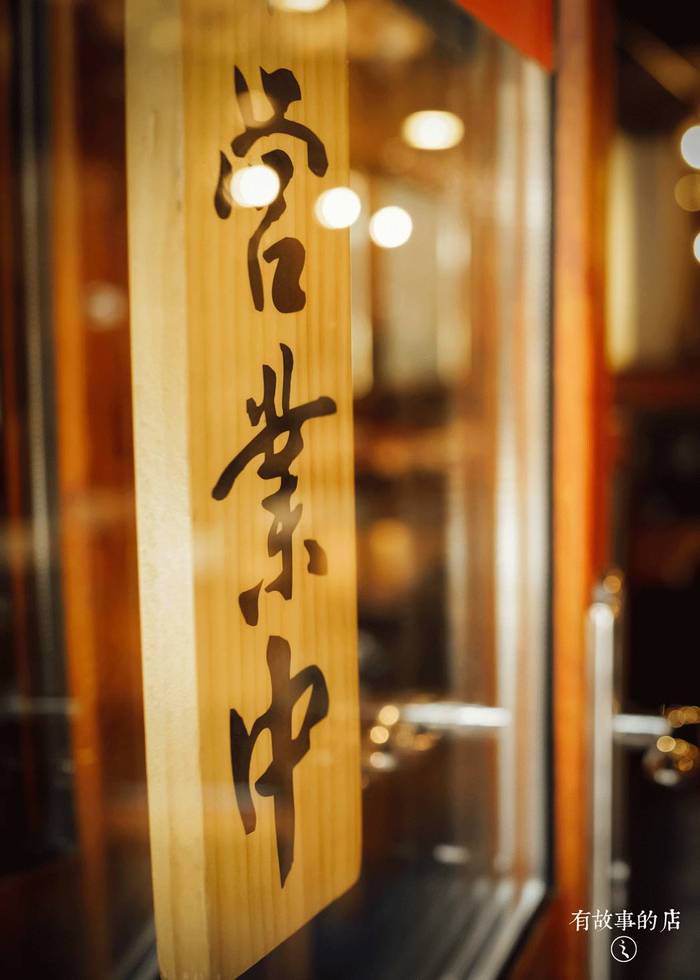 営業中
有故事的店